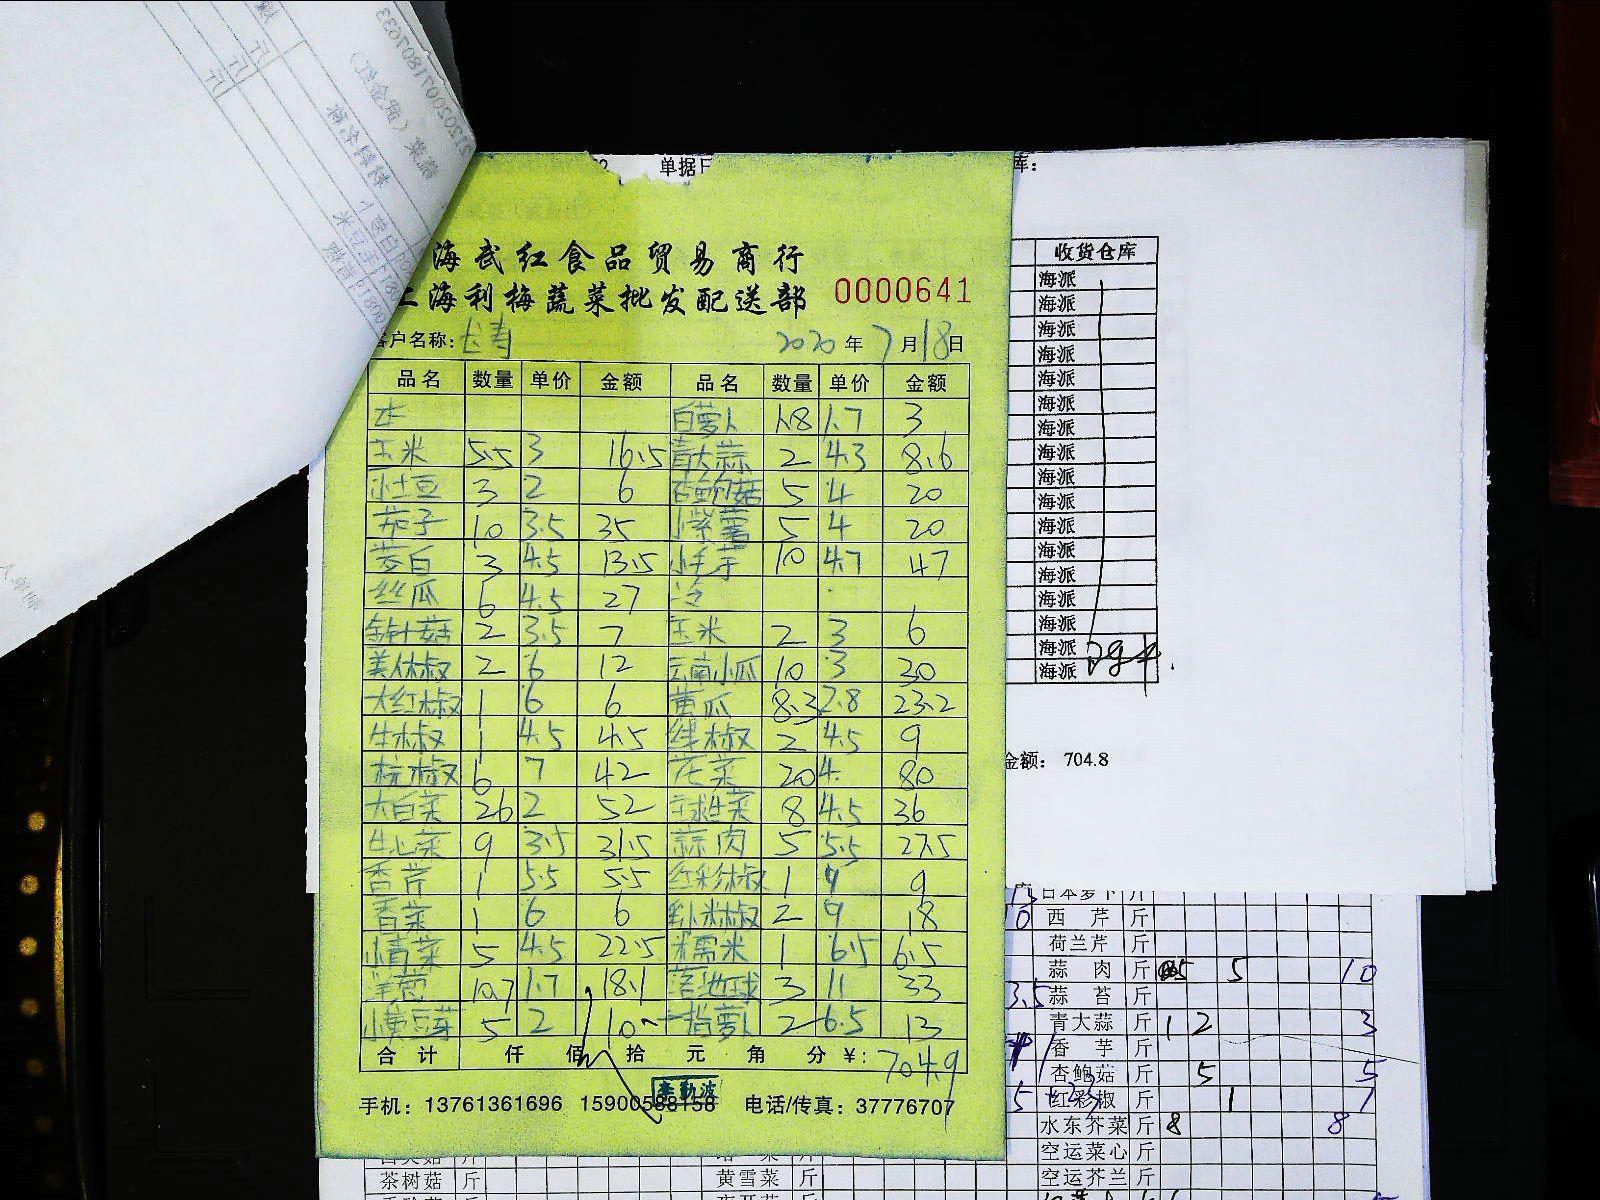 单据日
库：
海武红食品贸易商行
上海利梅蔬菜批发配送部 0000641
客户名称：长寿 2020年7月18日
品名 数量 单价 金额 品名 数量 单价 金额
白萝卜 1.8 1.7 3
玉米 5.5 3 16.5 青大蒜 2 4.3 8.6
小土豆 3 2 6 杏鲍菇 5 4 20
茄子 10 3.5 35 小紫薯 5 4 20
茭白 3 4.5 13.5 小毛芋 10 4.7 47
丝瓜 6 4.5 27 冷
金针菇 2 3.5 7 玉米 2 3 6
美人椒 2 6 12 云南小瓜 10 3 30
大红椒 1 6 6 黄瓜 8.3 2.8 23.2
牛椒 1 4.5 4.5 线椒 2 4.5 9
杭椒 6 7 42 花菜 20 4. 80
大白菜 26 2 52 球生菜 8 4.5 36
牛心菜 9 3.5 31.5 蒜肉 5 5.5 27.5
香芹 1 5.5 5.5 红彩椒 1 9 9
香菜 1 6 6 2 9 18
小青菜 5 4.5 22.5 糯米 1 6.5 6.5
洋葱 10.7 1.7 18.1 落地球 3 11 33
小黄豆芽 5 2 10 指萝卜 2 6.5 13
合计 仟 佰 拾 元 角 分 ¥: 704.9
手机：13761361696 15900568158 电话/传真：37776707
收货仓库
海派
海派
海派
海派
海派
海派
海派
海派
海派
海派
海派
海派
海派
海派
海派
海派
海派
金额： 704.8
日本萝卜 斤
10 西芹 斤
荷兰芹 斤
蒜肉 斤 5 10
3.5 蒜苔 斤
青大蒜 斤 1 2 3
香芋 斤
杏鲍菇 斤 5 5
红彩椒 斤 1 1
水东芥菜 斤 8 8
空运菜心 斤
茶树菇 斤 黄雪菜 斤 空运芥兰 斤